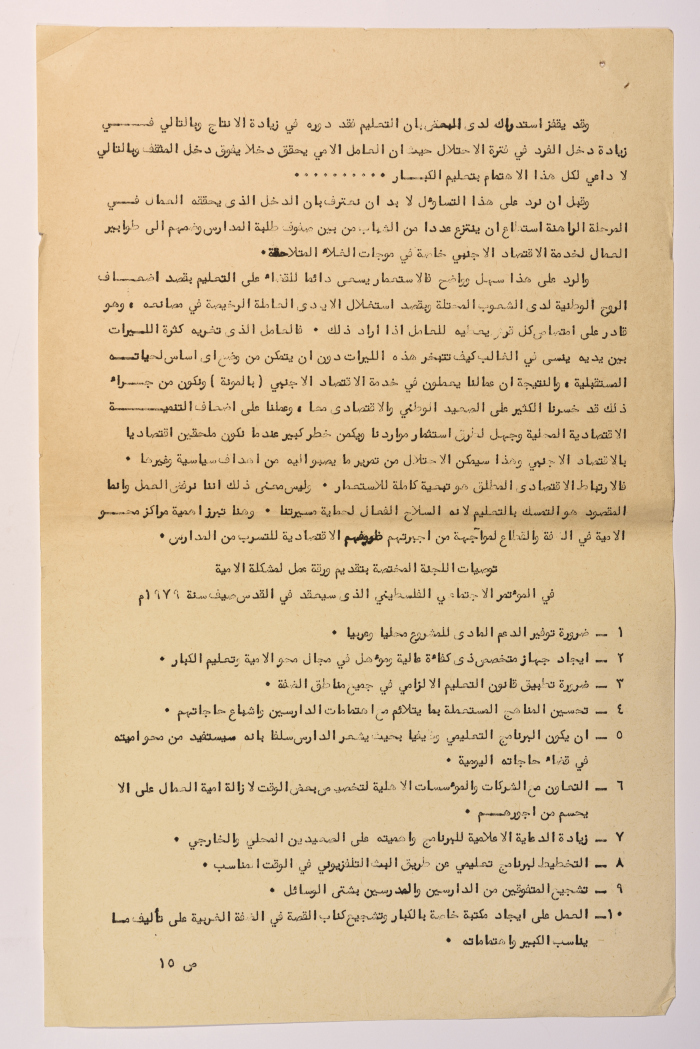 وقد يقفز استدراك لدى البعض بان التعليم فقد دوره في زيادة الانتاج وبالتالي فـــــي
زيادة دخل الفرد في فترة الاحتلال حيث ان العامل الامي يحقق دخلا يفوق دخل المثقف وبالتالي
لا داعي لكل هذا الاهتمام بتعليم الكبـــار ٠٠٠٠٠٠٠٠٠٠
وقبل ان نرد على هذا التساؤل لا بد ان نعترف بان الدخل الذى يحققه العمال فـــي
المرحلة الراهنة استطاع ان ينتزع عددا من الشباب من بين صفوف طلبة المدارس وضمهم الى طوابير
العمال لخدمة الاقتصاد الاجنبي خاصة في موجات الغلاء المتلاحقة٠
والرد على هذا سهل وواضح فالاستعمار يسعى دائما للقضاء على التعليم بقصد اضعـــاف
الروح الوطنية لدى الشعوب المحتلة وبقصد استغلال الايدى العاملة الرخيصة في مصانعه ، وهو
قادر على امتصاص كل قرش يعطيه للعامل اذا اراد ذلك ٠ فالعامل الذى تغريه كثرة الليــرات
بين يديه ينسى في الغالب كيف تتبخر هذه الليرات دون ان يتمكن من وضع اى اساس لحياتـــه
المستقبلية ، والنتيجة ان عمالنا يعملون في خدمة الاقتصاد الاجنبي ( بالمونة ) ونكون من جـــراء
ذلك قد خسرنا الكثير على الصعيد الوطني والاقتصادى معا ، وعملنا على اضعاف التنميـــــة
الاقتصادية المحلية وجهل لطرق استثمار مواردنا ويكمن خطر كبير عندما نكون ملحقين اقتصاديا
بالاقتصاد الاجنبي وهذا سيمكن الاحتلال من تمرير ما يصبو اليه من اهداف سياسية وغيرها ٠
فالارتباط الاقتصادى المطلق هو تبعية كاملة للاستعمار ٠ وليس معنى ذلك اننا نرفض العمل وانما
المقصود هو التمسك بالتعليم لانه السلاح الفعال لحماية مسيرتنا ٠ وهنا تبرز اهمية مراكز محـــو
الامية في الضفة والقطاع لمواجهة من اجبرتهم ظروفهم الاقتصادية للتسرب من المدارس ٠
توصيات اللجنة المختصة بتقديم ورقة عمل لمشكلة الامية
في المؤتمر الاجتماعي الفلسطيني الذى سيعقد في القدس صيف سنة ١٩٧٩م
١ ــ ضرورة توفير الدعم المادى للمشروع محليا وعربيا ٠
٢ ــ ايجاد جهاز متخصص ذى كفاءة عالية ومؤهل في مجال محو الامية وتعليم الكبار ٠
٣ ــ ضرورة تطبيق قانون التعليم الالزامي في جميع مناطق الضفة ٠
٤ ــ تحسين المناهج المستعملة بما يتلائم مع اهتمامات الدارسين واشباع حاجاتهم ٠
٥ ــ ان يكون البرنامج التعليمي وظيفيا بحيث يشعر الدارس سلفا بانه سيستفيد من محو اميته
في قضاء حاجاته اليومية ٠
٦ ــ التعاون مع الشركات والمؤسسات الاهلية لتخصيص بعض الوقت لازالة امية العمال على الا
يحسم من اجورهـــم ٠
٧ ــ زيادة الدعاية الاعلامية للبرنامج واهميته على الصعيدين المحلي والخارجي ٠
٨ ــ التخطيط لبرنامج تعليمي عن طريق البث التلفزيوني في الوقت المناسب ٠
٩ ــ تشجيع المتفوقين من الدارسين والمدرسين بشتى الوسائل ٠
١٠ــ العمل على ايجاد مكتبة خاصة بالكبار وتشجيع كتاب القصة في الضفة الغربية على تأليف مــا
يناسب الكبير واهتماماته ٠
ص ١٥